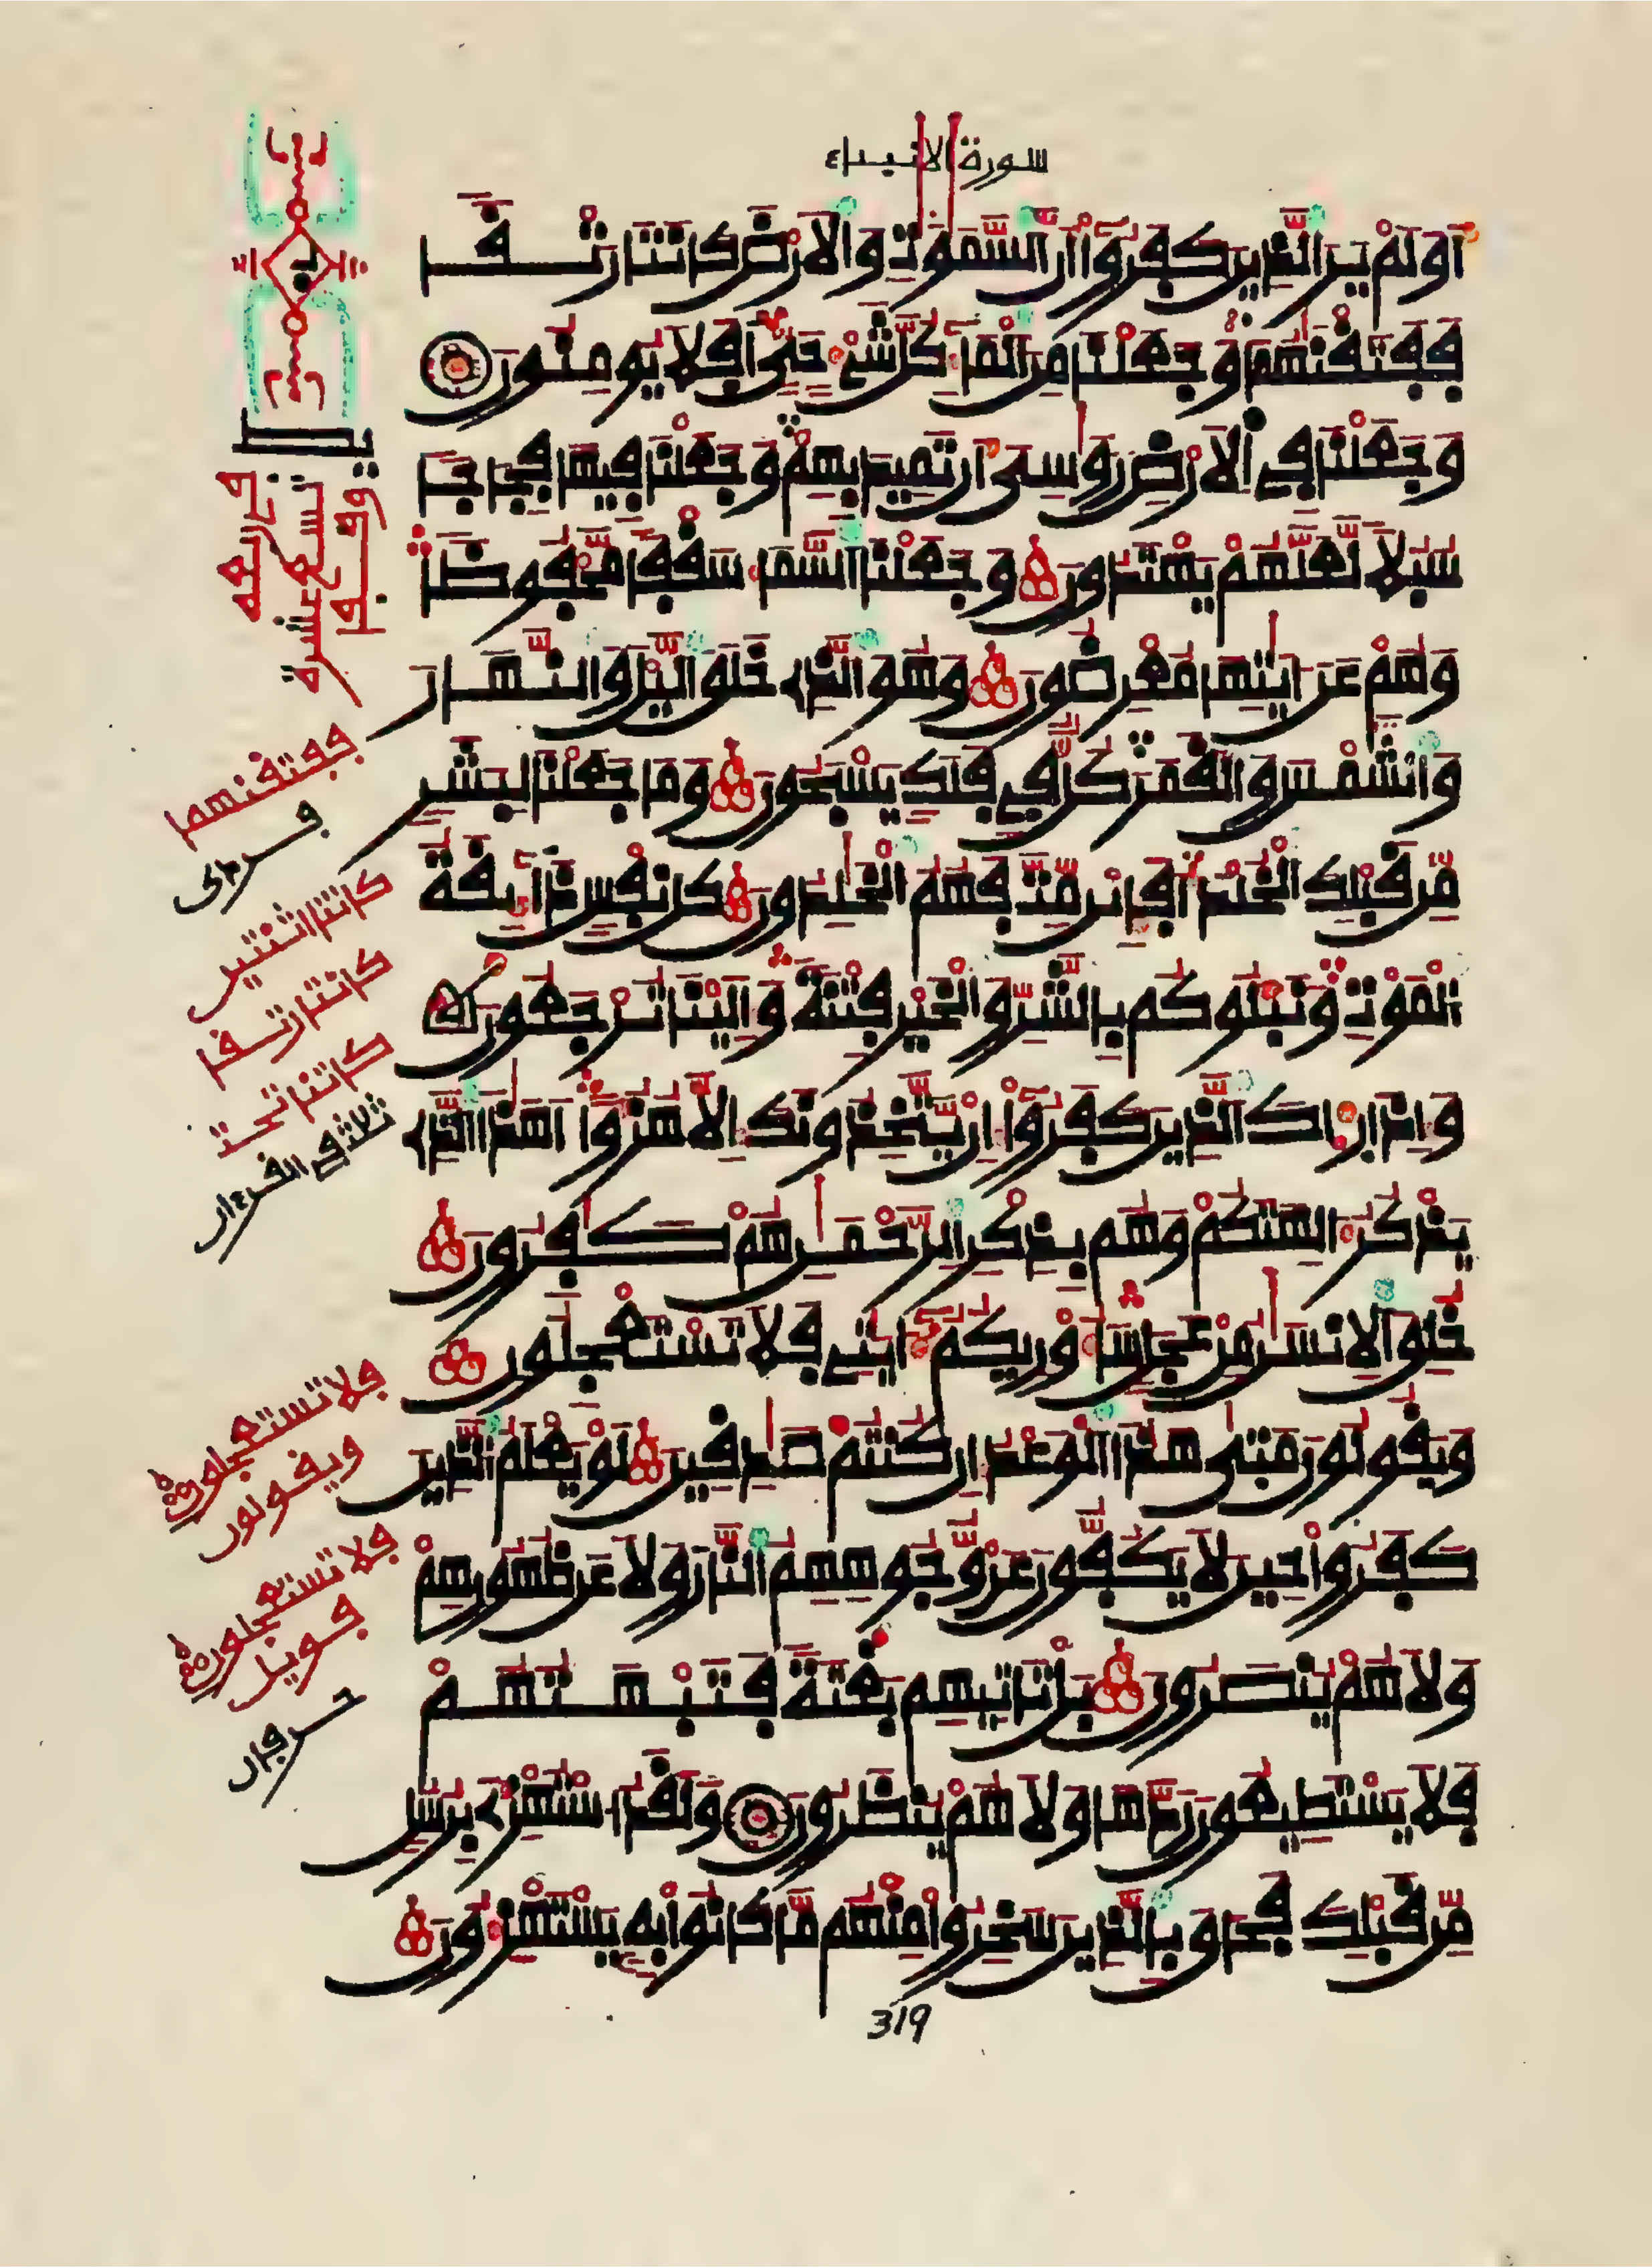 سورة الانبياء
أَوَلَمْ يَرَ الَّذِينَ كَفَرُوا أَنَّ السَّمَوَتِ وَالَارْضَ كَانَتَا رَتْقًا
فَفَتَقْنَهُمَا وَجَعَلْنَا مِنَ الْمَاءِ كُلَّ شَيْءٍ حَيٍّ أَفَلَا يُومِنُونَ
وَجَعَلْنَا فِي الَارْضِ رَوَسِيَ أَن تَمِيدَ بِهِمْ وَجَعَلْنَا فِيهَا فِجَاجًا
سُبُلًا لَّعَلَّهُمْ يَهْتَدُونَ وَجَعَلْنَا السَّمَاءَ سَقْفًا مَّحْفُوظًا
وَهُمْ عَنَ ايَتِهَا مُعْرِضُونَ وَهُوَ الَّذِي خَلَقَ الَّيْلَ وَالنَّهَارَ
وَالشَّمْسَ وَالْقَمَرَ كُلٌّ فِي فَلَكٍ يَسْبَحُونَ وَمَا جَعَلْنَا لِبَشَرٍ
مِّن قَبْلِكَ الْخُلْدَ أَفَإِين مِّتَّ فَهُمُ الْخَلِدُونَ كُلُّ نَفْسٍ ذَائِقَةُ
الْمَوْتِ وَنَبْلُوكُم بِالشَّرِّ وَالْخَيْرِ فِتْنَةً وَإِلَيْنَا تُرْجَعُونَ
وَإِذَا رَءَاكَ الَّذِينَ كَفَرُوا إِن يَّتَّخِذُونَكَ إِلَّا هُزُوًا أَهَذَا الَّذِي
يَذْكُرُ ءَالِهَتَكُمْ وَهُم بِذِكْرِ الرَّحْمَنِ هُمْ كَفِرُونَ
خُلِقَ الِانسَنُ مِنْ عَجَلٍ سَأُوْرِيكُمُ ءَايَتِي فَلَا تَسْتَعْجِلُونِ
وَيَقُولُونَ مَتَى هَذَا الْوَعْدُ إِن كُنتُمْ صَدِقِينَ لَوْ يَعْلَمُ الَّذِينَ
كَفَرُوا حِينَ لَا يَكُفُّونَ عَن وُّجُوهِهِمُ النَّارَ وَلَا عَن ظُهُورِهِمْ
وَلَا هُمْ يُنصَرُونَ بَلْ تَاتِيهِم بَغْتَةً فَتَبْهَتُهُمْ
فَلَا يَسْتَطِيعُونَ رَدَّهَا وَلَا هُمْ يُنظَرُونَ وَلَقَدُ اسْتُهْزِئَ بِرُسُلٍ
مِّن قَبْلِكَ فَحَاقَ بِالَّذِينَ سَخِرُوا مِنْهُم مَّا كَانُوا بِهِ يَسْتَهْزِءُونَ
319
ففتقنهما
كانتا اثنتين
كانتا رتقا
كانتا تحت
ثلاثة في القرءان
فلا تستعجلون
ويقولون
فلا تستعجلون
فويل
حرفان